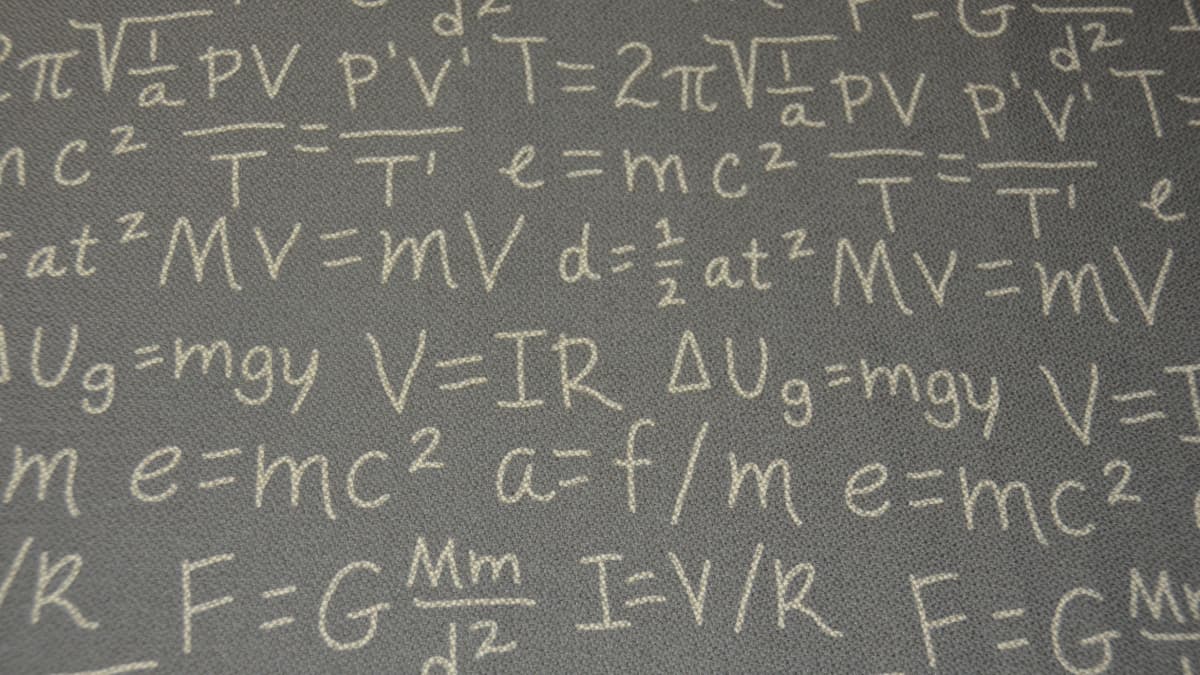 d² F=G Mm/d²
2π√1/a PV P'V' T=2π√1/a PV P'V' T=
mc² /T = /T' e=mc² /T = /T' e
at² Mv=mV d=½at² Mv=mV
ΔUg=mgy V=IR ΔUg=mgy V=I
m e=mc² a=f/m e=mc²
/R F=G Mm/d² I=V/R F=G M